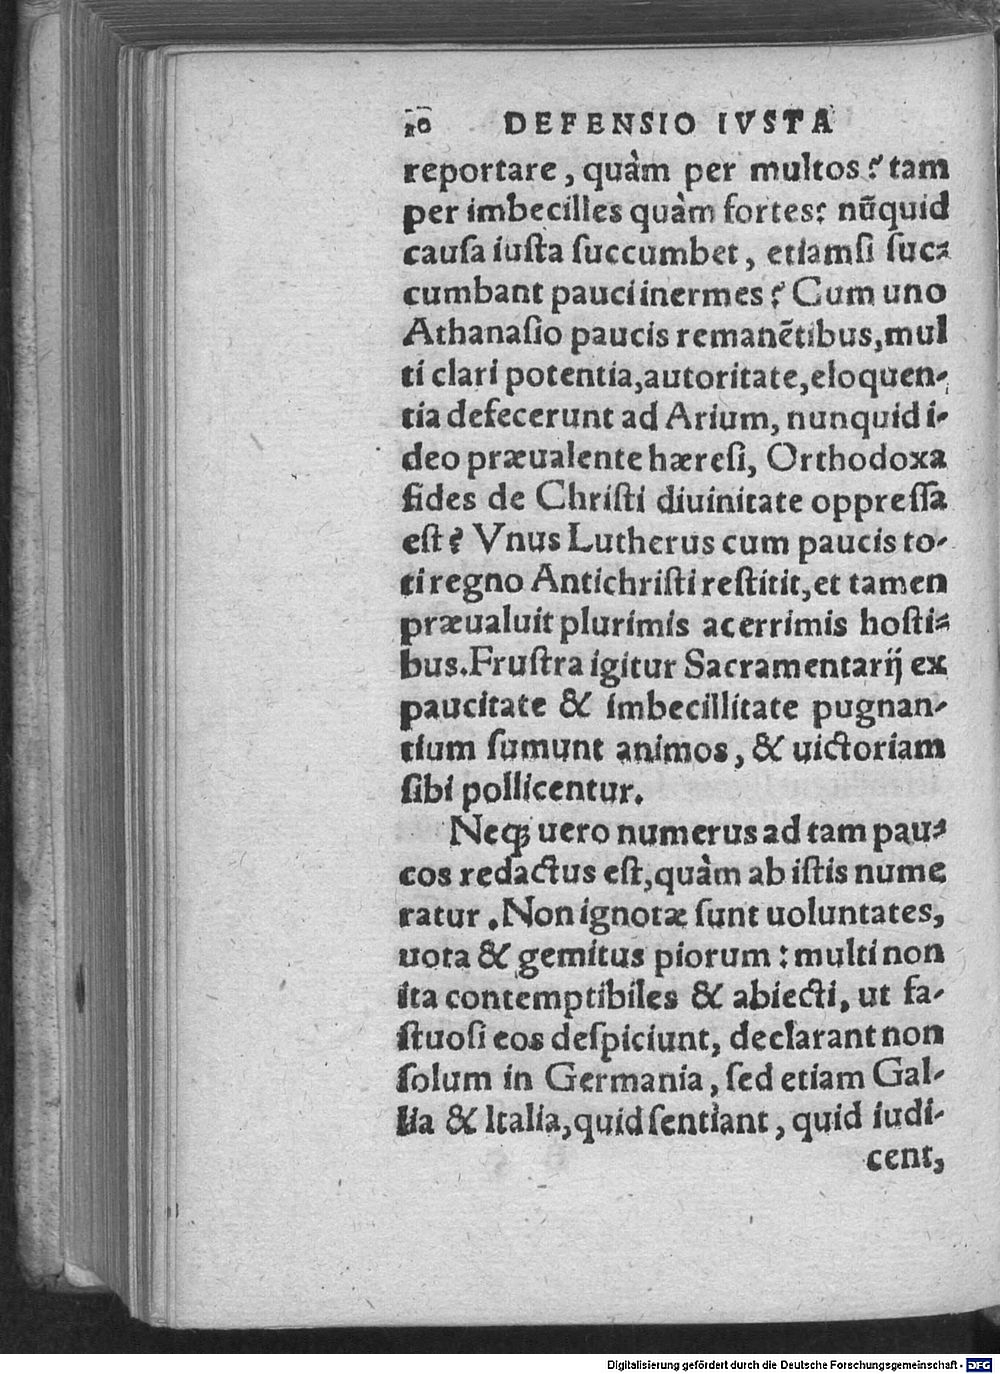 10 DEFENSIO IVSTA
reportare, quàm per multos? tam
per imbecilles quàm fortes? nūquid
causa iusta succumbet, etiamsi suc-
cumbant pauci inermes? Cum uno
Athanasio paucis remanētibus, mul
ti clari potentia, autoritate, eloquen-
tia defecerunt ad Arium, nunquid i-
deo præualente hæresi, Orthodoxa
fides de Christi diuinitate oppressa
est? Vnus Lutherus cum paucis to-
ti regno Antichristi restitit, et tamen
præualuit plurimis acerrimis hosti-
bus. Frustra igitur Sacramentarij ex
paucitate & imbecillitate pugnan-
tium sumunt animos, & uictoriam
sibi pollicentur.
Neqꝫ uero numerus ad tam pau-
cos redactus est, quàm ab istis nume
ratur. Non ignotæ sunt uoluntates,
uota & gemitus piorum: multi non
ita contemptibiles & abiecti, ut fa-
stuosi eos despiciunt, declarant non
solum in Germania, sed etiam Gal-
lia & Italia, quid sentiant, quid iudi-
cent,
Digitalisierung gefördert durch die Deutsche Forschungsgemeinschaft - DFG